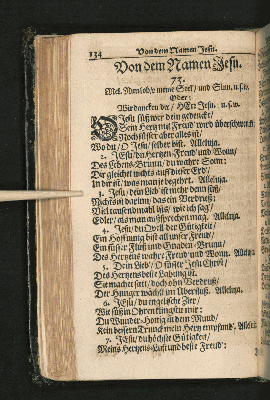 134 Von dem Namen Jesu.
Von dem Namen Jesu.
73.
Mel. Nun lob/ o meine Seel/ und Sinn/ u.s.w.
Oder:
Wir dancken dir/ HErr Jesu/ u.s.w.
O Jesu süß wer dein gedenckt/
Sein Hertz mit Freud wird überschwenckt/
Noch süsser aber alles ist/
Wo du/ O Jesu/ selber bist. Alleluja.
2. JESu/ du Hertzen-Freud und Wonn/
Des Lebens-Brunn/ du wahre Sonn:
Dir gleichet nichts auff dieser Erd/
In dir ist/ was man je begehrt. Alleluja.
3. Jesu/ dein Lieb' ist mehr denn süß/
Nichts ist darinn/ das ein' Verdrieß;
Viel tausendmahl ists/ wie ich sag'/
Edler/ als man außsprechen mag. Alleluja.
4. Jesu/ du Quell der Gütigkeit/
Ein Hoffnung bist all unser Freud/
Ein süsser Fluß und Gnaden-Brunn/
Des Hertzens wahre Freud und Wonn. Alleluja.
5. Dein Lieb/ O süsser JEsu Christ/
Des Hertzens beste Labung ist.
Sie machet satt/ doch ohn Verdruß/
Der Hunger wächst im Uberfluß. Alleluja.
6. JEsu/ du engelische Zier/
Wie süß in Ohren klingstu mir:
Du Wunder-Honig in dem Mund/
Kein bessern Trunck mein Hertz empfund. Alleluja.
7. JEsu/ du höchste Gütigkeit/
Meins Hertzens Lust und beste Freud: